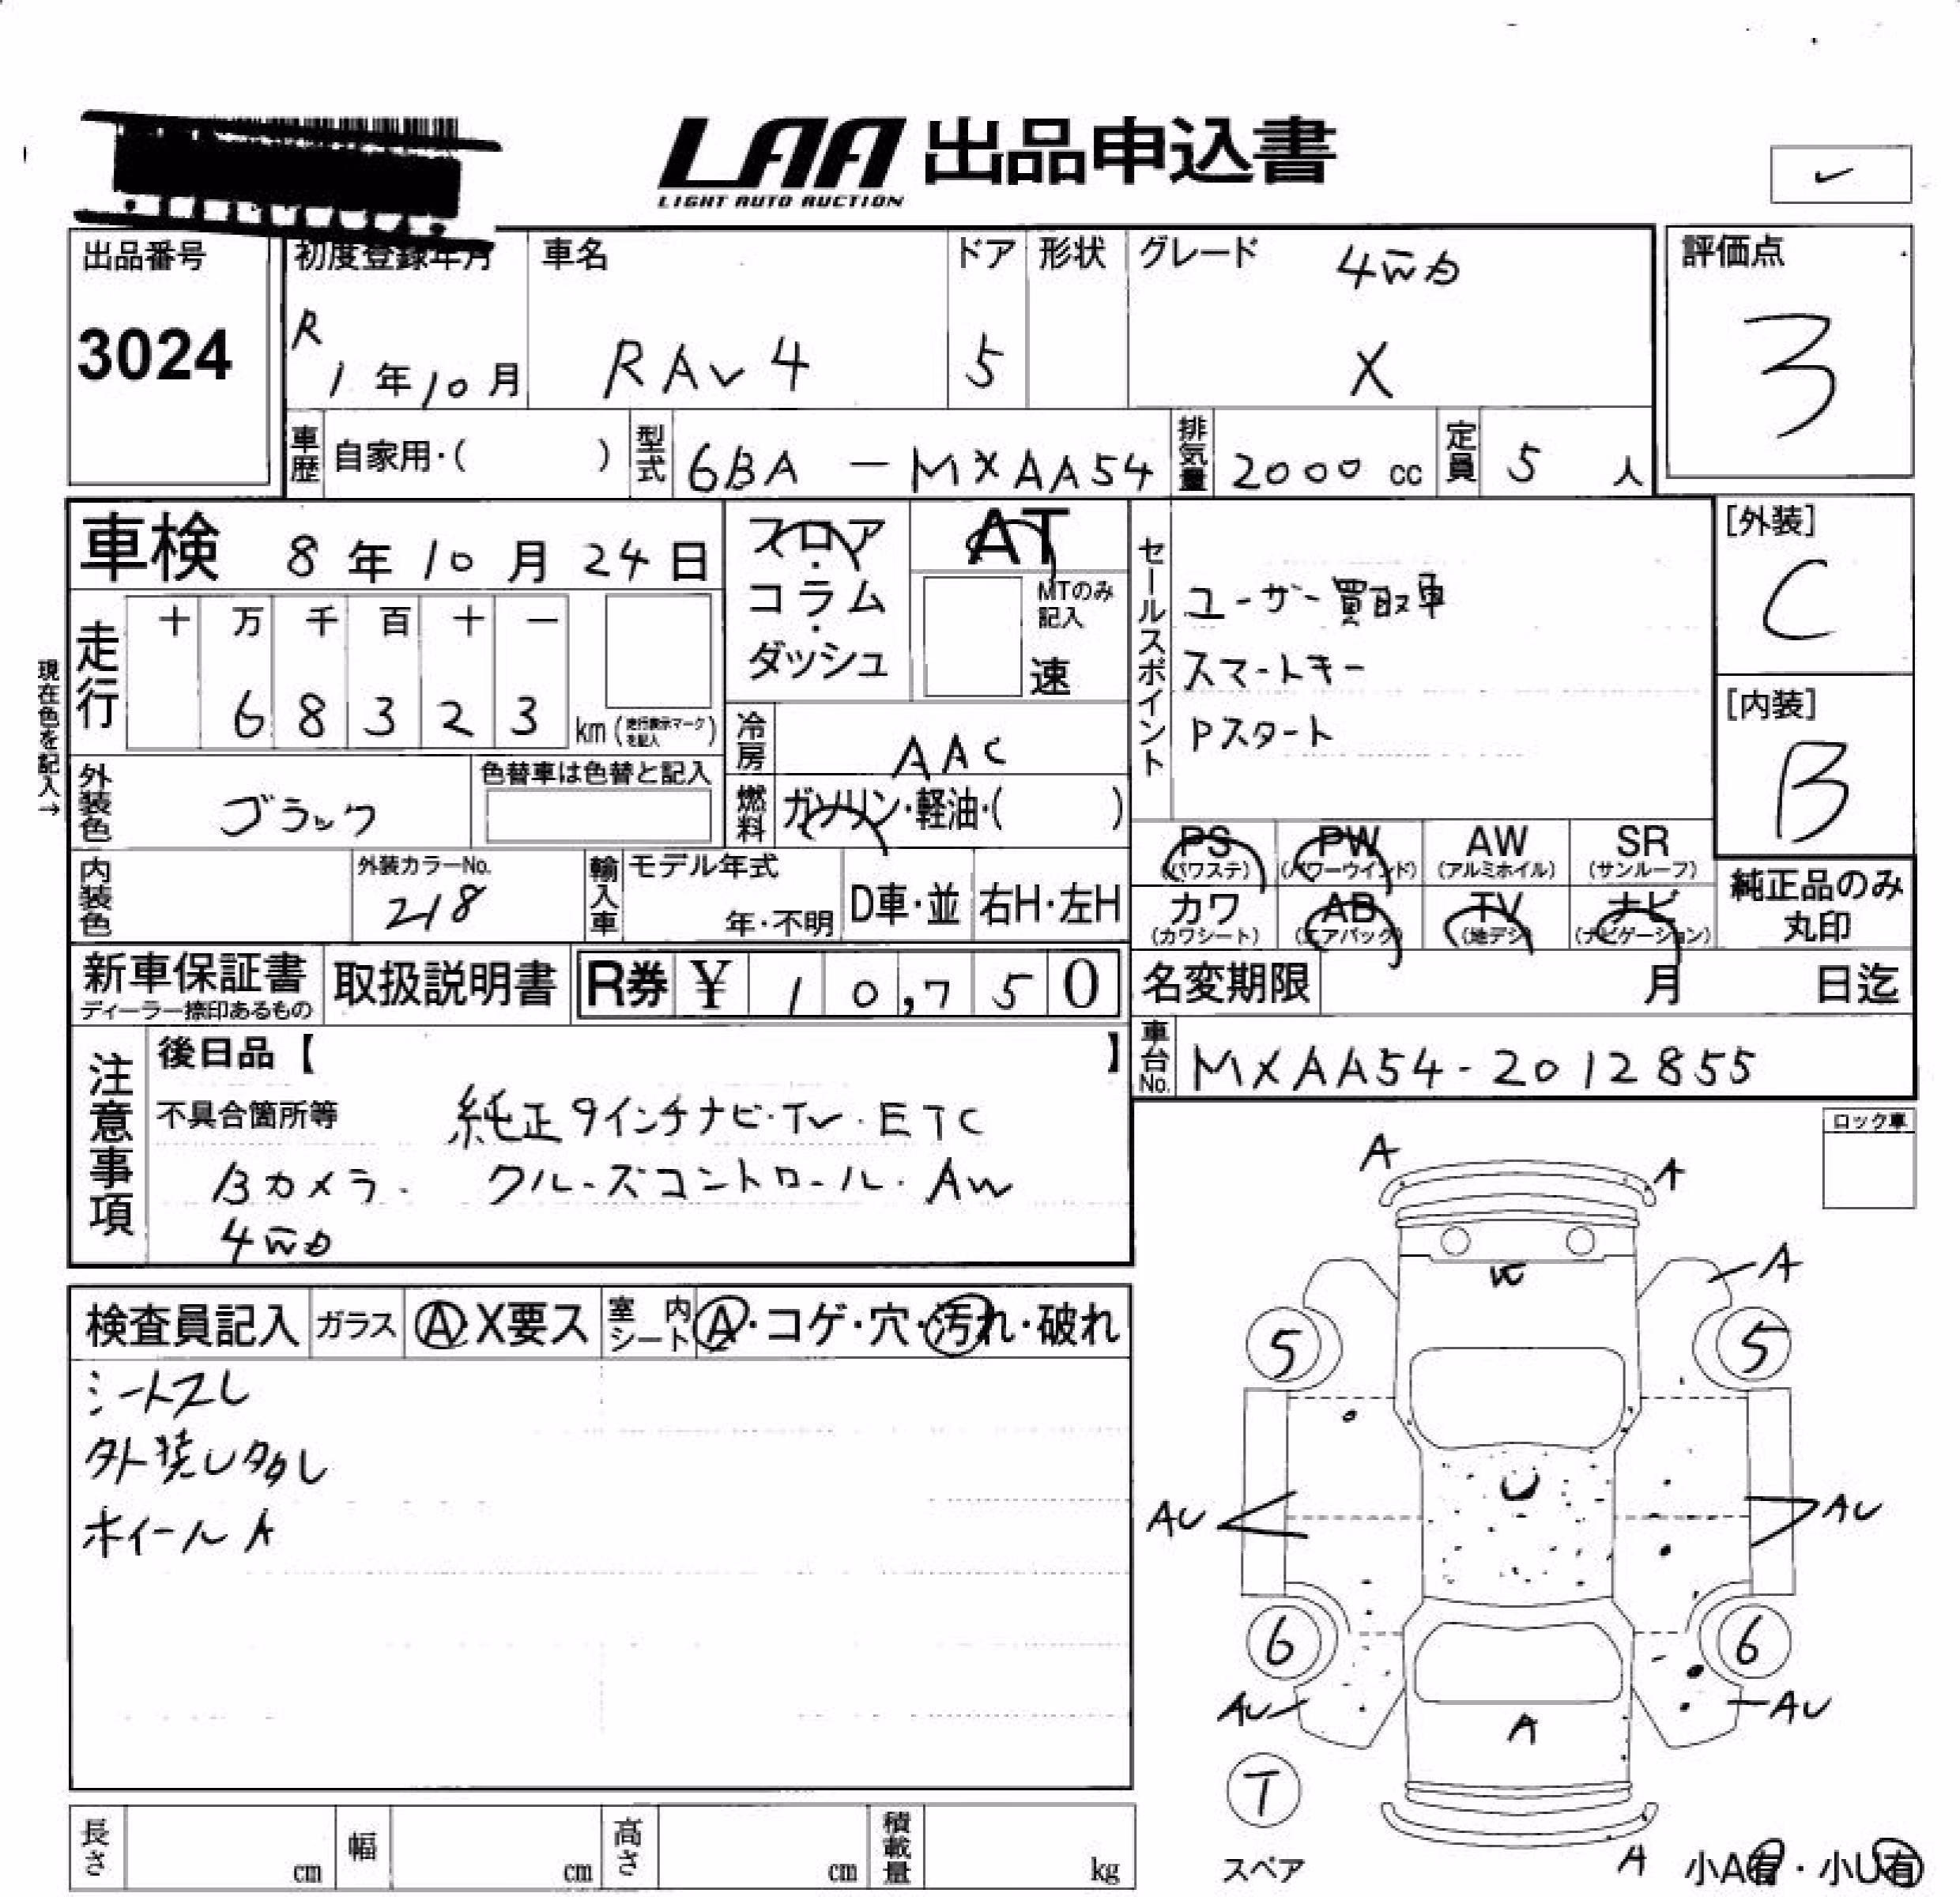 LAA 出品申込書
LIGHT AUTO AUCTION
出品番号
3024
初度登録年月
R
1年10月
車名
RAV4
ドア
5
形状
グレード 4WD
X
評価点
3
車歴 自家用・( )
型式 6BA - MXAA54
排気量 2000 cc
定員 5 人
車検 8年10月24日
フロア・コラム・ダッシュ
AT
MTのみ記入
速
セールスポイント
ユーザー買取車
スマートキー
Pスタート
[外装]
C
[内装]
B
現在色を記入→
走行 十 万 千 百 十 一
6 8 3 2 3 km (走行表示マークを記入)
冷房 AAC
外装色 ブラック
色替車は色替と記入
燃料 ガソリン・軽油・( )
PS (パワステ) PW (パワーウインド) AW (アルミホイル) SR (サンルーフ)
内装色
外装カラーNo.
218
輸入車 モデル年式
年・不明
D車・並 右H・左H
カワ (カワシート) AB (エアバック) TV (地デジ) ナビ (ナビゲーション)
純正品のみ丸印
新車保証書
ディーラー捺印あるもの
取扱説明書
R券 ¥ 10,750
名変期限 月 日迄
車台No. MXAA54-2012855
注意事項
後日品【 】
不具合箇所等 純正9インチナビ・TV・ETC
Bカメラ・ クルーズコントロール・AW
4WD
ロック車
検査員記入 ガラス A X要ス 室内シート A・コゲ・穴・汚れ・破れ
シートスレ
ホイールA
A
A
A
5
5
U
AU
AU
6
6
AU
AU
A
T
スペア
A
小A有・小U有
長さ cm 幅 cm 高さ cm 積載量 kg